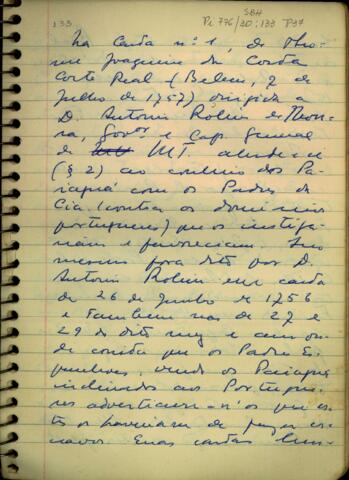 133
SBH
Pi 776/30:133 P37
Na Carta nº 1, de Tho-
mé Joaquim da Costa
Corte Real (Belem, 7 de
Julho de 1757) dirigida a
D. Antonio Rolim de Mou-
ra, Govor e Cap. General
de MT. alude-se
(§ 2) ao comercio dos Pa-
raiguá com os Padres da
Cia. (contra os dominios
portugueses) que os instiga-
vam e favoreciam. Isso
mesmo fora dito por D.
Antonio Rolim em carta
de 26 de Junho de 1756
e tambem nas de 27 e
29 do dito mez e anno on-
de consta que os Padres Es-
panhoes, vendo os Paiaguá
inclinados ao Portugue-
ses advertiram-n'os que es-
tes os haveriam de fazer es-
cravos. Essas cartas